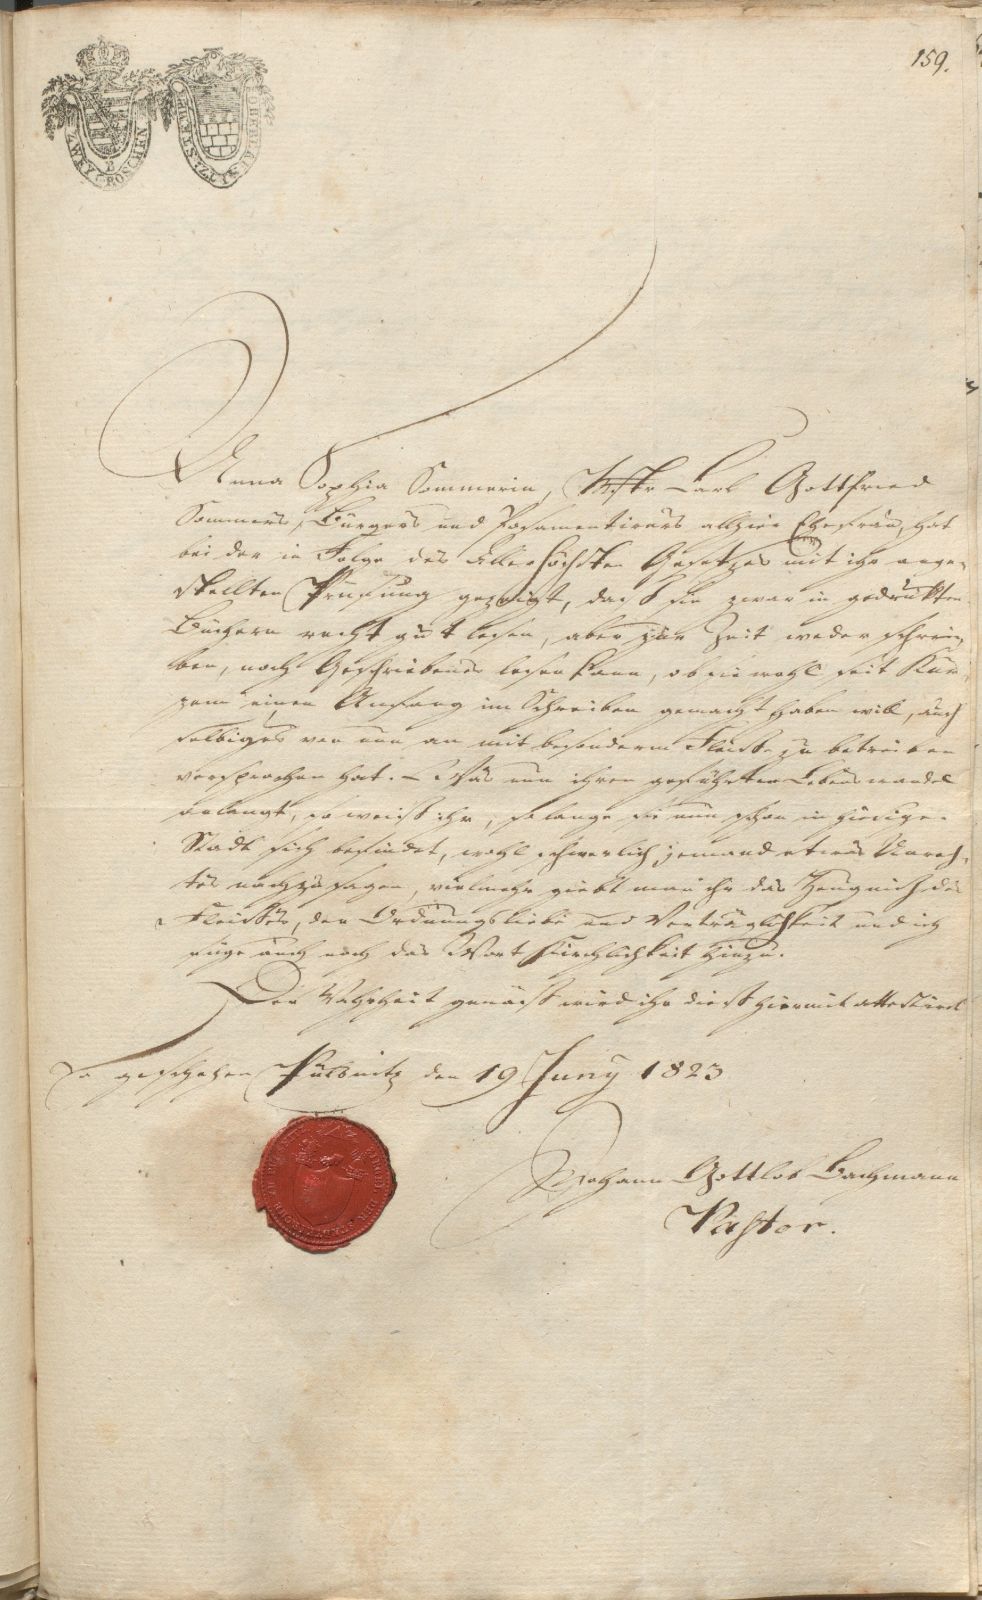 159.
ZWEY GROSCHEN
B
OBERLAUSITZ. STEMP.
Anna Sophia Sommerin, Mstr Carl Gottfried
Sommers, Bürgers und Posamentirers allhier Ehefrau, hat
bei der in Folge des Allerhöchsten Gesetzes mit ihr ange-
stellten Prüfung gezeigt, daß sie zwar in gedruckten
Büchern recht gut lesen, aber zur Zeit weder schrei-
ben, noch Geschriebenes lesen kann, ob sie wohl seit Kur-
zem einen Anfang im Schreiben gemacht haben will, auch
selbiges von nun an mit besonderm Fleiße zu betreiben
versprochen hat. – Was nun ihren geführten Lebenswandel
anlangt, so weiß ihr, so lange sie nun schon in hiesiger
Stadt sich befindet, wohl schwerlich jemand etwas Unrech-
tes nachzusagen, vielmehr giebt man ihr das Zeugniß des
Fleißes, der Ordnungsliebe und Verträglichkeit und ich
füge auch noch das Wort Kirchlichkeit hinzu.
Der Wahrheit gemäß wird ihr dieß hiermit attestirt
So geschehen Pulsnitz den 19 Juny 1823
Johann Gottlob Bachmann
Pastor.